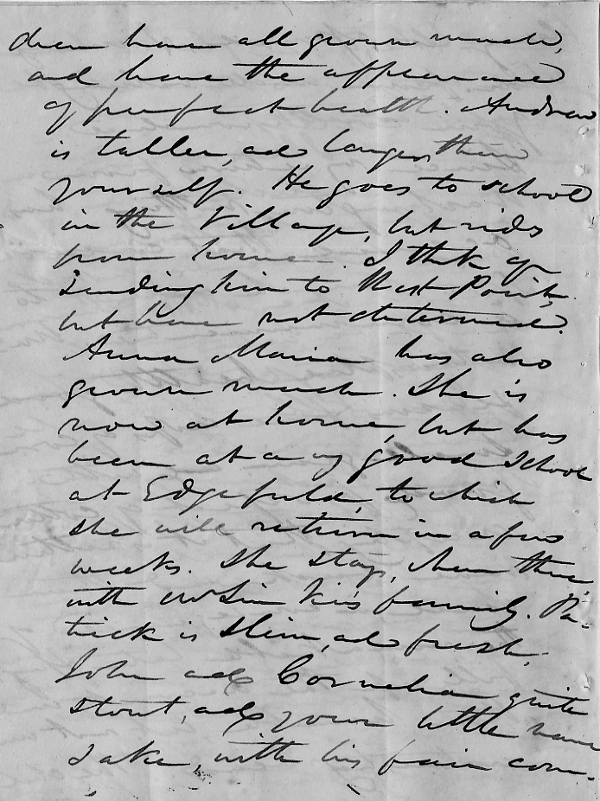 dren have all grown much,
and have the appearance
of perfect health. Andrew
is taller, and larger, than
yourself. He goes to school
in the Village, but rides
from home. I think of
sending him to West Point,
but have not determined.
Anna Maria has also
grown much. She is
now at home, but has
been at a very good school
at Edgefield, to which
she will return in a few
weeks. She stays, when there,
with family. Pa-
trick is slim, and fresh,
John and Cornelia quite
stout, and your little name
sake, with his fair com-